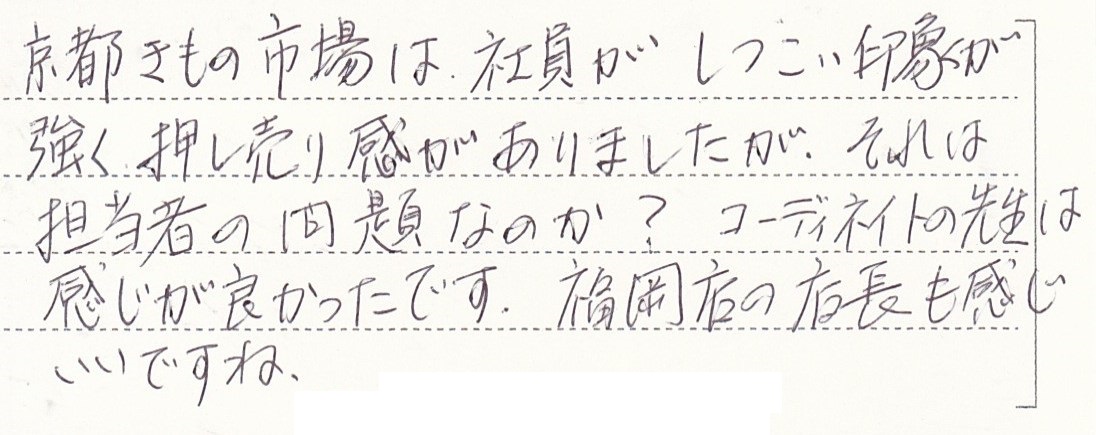 京都きもの市場は、社員がしつこい印象が
強く、押し売り感がありましたが、それは
担当者の問題なのか？ コーディネイトの先生は
感じが良かったです。福岡店の店長も感じ
いいですね、